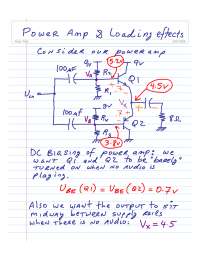 Power Amp & Loading effects
Consider our power amp
9v
5.2v
9v
100µF
R2
Q1
R1
4.5v
Vin
9v
Vx
100µF
R2
8Ω
R1
Q2
3.8v
DC Biasing of power amp: we
want Q1 and Q2 to be "barely"
turned on when no audio is
playing.
UBE (Q1) = UBE (Q2) = 0.7V
Also we want the output to sit
midway between supply rails
when there is no audio: Vx = 4.5